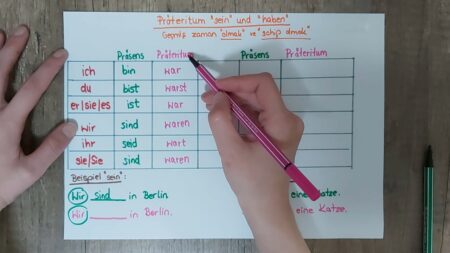 Präteritum "sein" und "haben"
Geçmiş zaman "olmak" ve "sahip olmak"
Präsens Präteritum Präsens Präteritum
ich bin war
du bist warst
er|sie|es ist war
wir sind waren
ihr seid wart
sie|Sie sind waren
Beispiel "sein":
Wir sind in Berlin. eine Katze.
Wir ______ in Berlin. eine Katze.